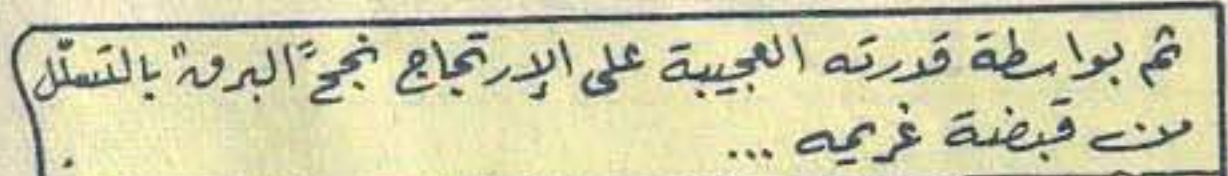 ثم بواسطة قدرته العجيبة على الإرتجاج نجح "البرق" بالتسلّل
من قبضة غريمه ...